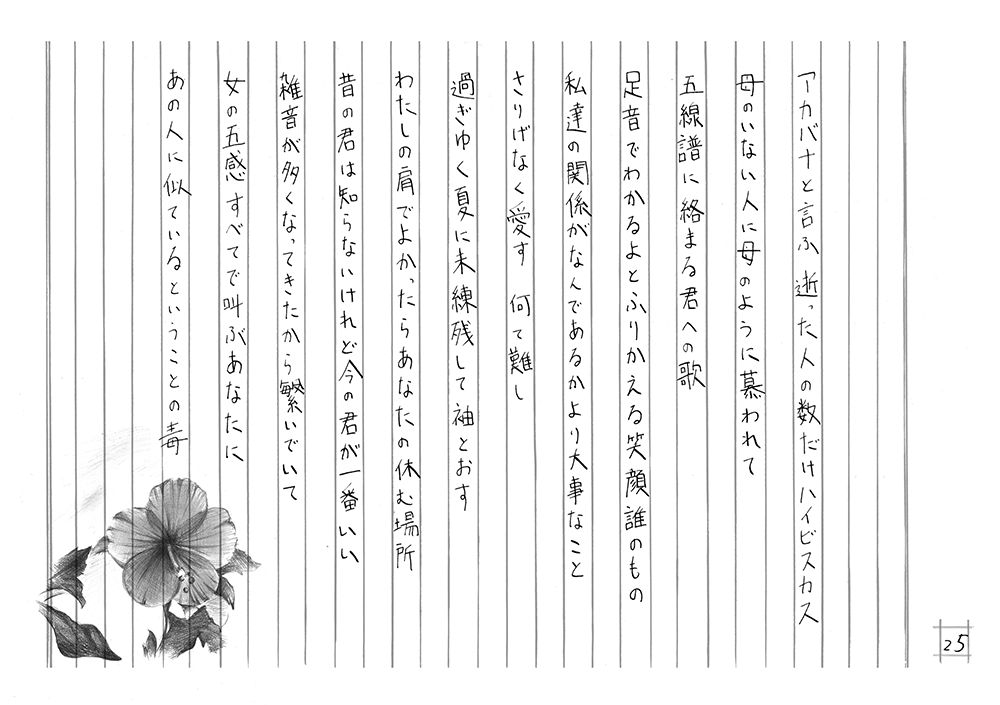 アカバナと言ふ 逝った人の数だけハイビスカス
母のいない人に母のように慕われて
五線譜に絡まる君への歌
足音でわかるよとふりかえる笑顔誰のもの
私達の関係がなんであるかより大事なこと
さりげなく愛す 何て難し
過ぎゆく夏に未練残して袖とおす
わたしの肩でよかったらあなたの休む場所
昔の君は知らないけれど今の君が一番いい
雑音が多くなってきたから繋いでいて
女の五感すべてで叫ぶあなたに
あの人に似ているということの毒
25